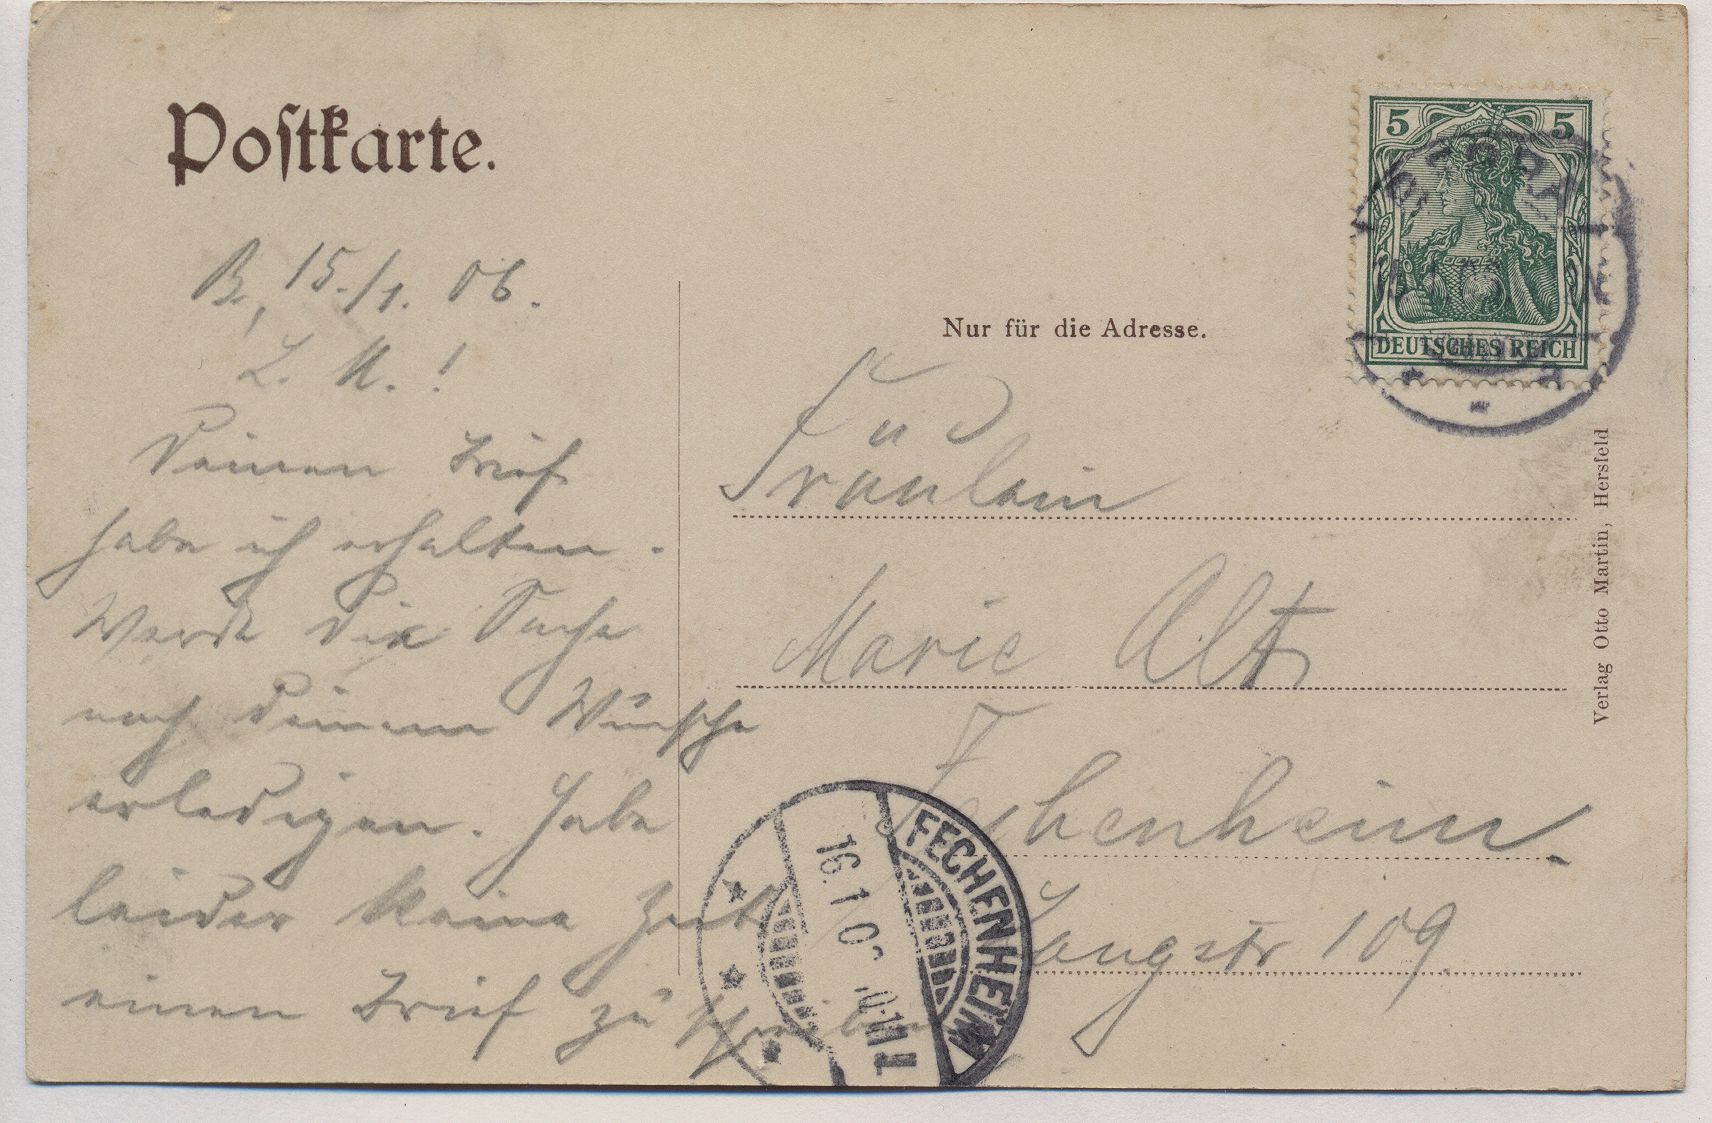 Postkarte.
B., 15./1. 06.
L. M.!
Deinen Brief
habe ich erhalten.
Werde die Sache
nach deinem Wunsche
erledigen. Habe
leider keine Zeit
einen Brief zu schreiben
5 5
DEUTSCHES REICH
Nur für die Adresse.
Fräulein
Marie Alt
Fechenheim.
Langstr 109.
FECHENHEIM
16.1.0
Verlag Otto Martin, Hersfeld